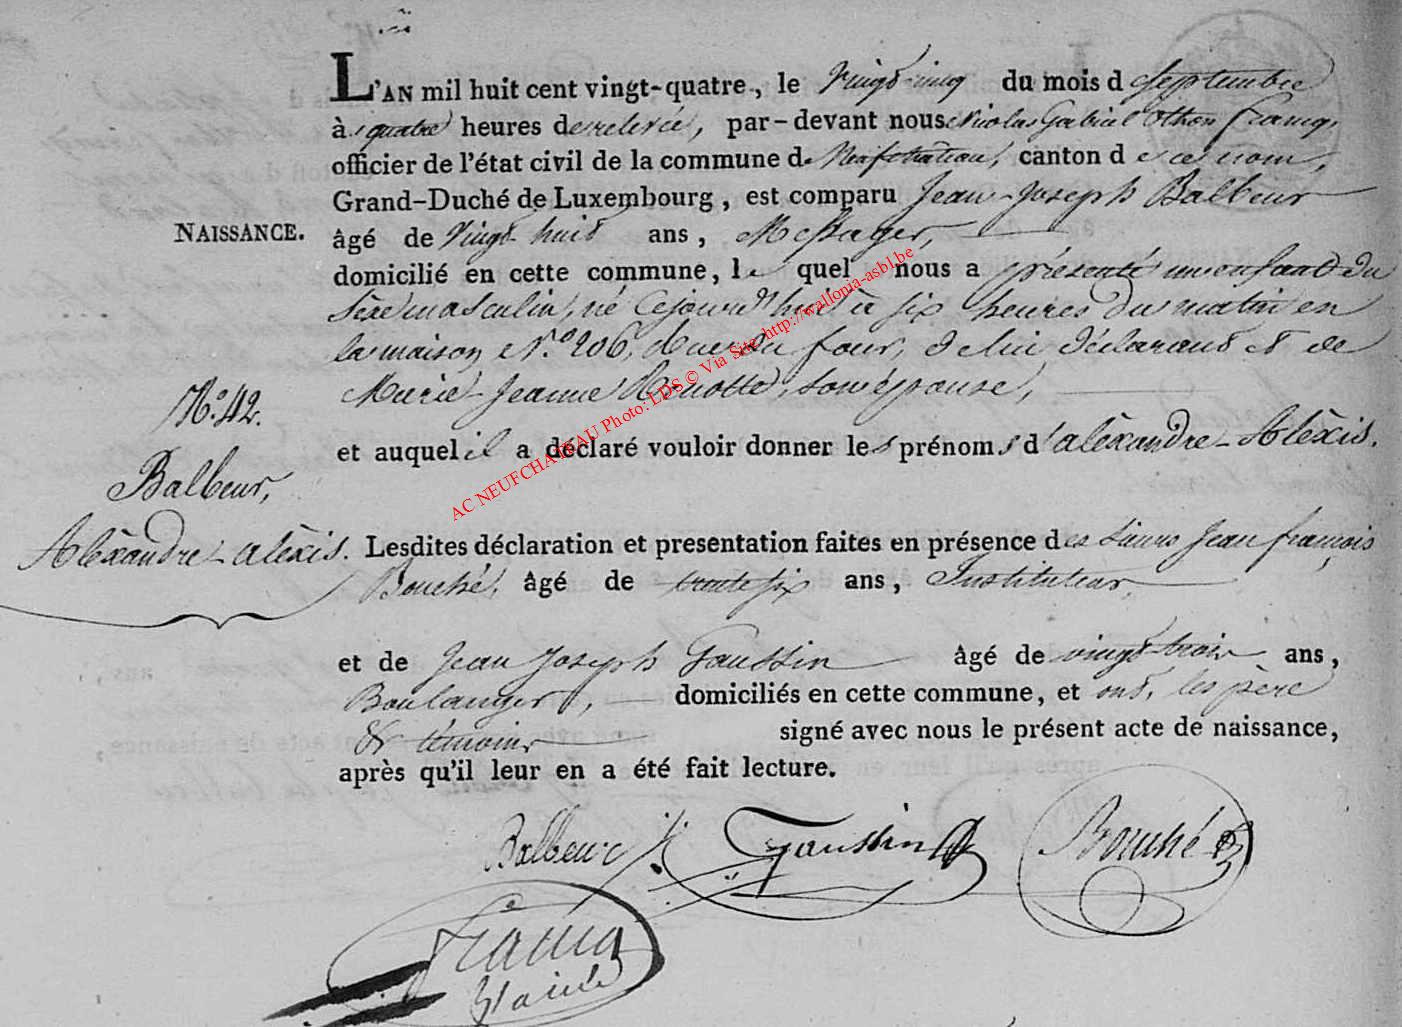 L'AN mil huit cent vingt-quatre, le Vingt-cinq du mois d e Septembre
à quatre heures de relevée, par-devant nous Nicolas Gabriel Othon Francq,
officier de l'état civil de la commune de Neufchateau, canton d e ce nom,
Grand-Duché de Luxembourg, est comparu Jean-Joseph Balbeur
NAISSANCE.
âgé de Vingt huit ans, Messager,
domicilié en cette commune, le quel nous a présenté un enfant du
Sèxe masculin, né Cejourd'hui à six heures du matin en
la maison N.° 206, rue du four, de lui déclarant et de
Marie-Jeanne Henotte, son épouse,
N.° 42.
et auquel il a déclaré vouloir donner les prénoms d'alèxandre-Alèxis.
Balbeur,
Alèxandre-alèxis.
Lesdites déclaration et presentation faites en présence des Sieurs Jean françois
Bouché, âgé de trente six ans, Instituteur,
et de Jean Joseph Gaussin âgé de vingt-trois ans,
Boulanger, domiciliés en cette commune, et ont, les père
& témoins signé avec nous le présent acte de naissance,
après qu'il leur en a été fait lecture.
Balbeur Gaussin Bouché
Francq
AC NEUFCHATEAU Photo: LDS © Via Site: http://wallonia-asbl.be